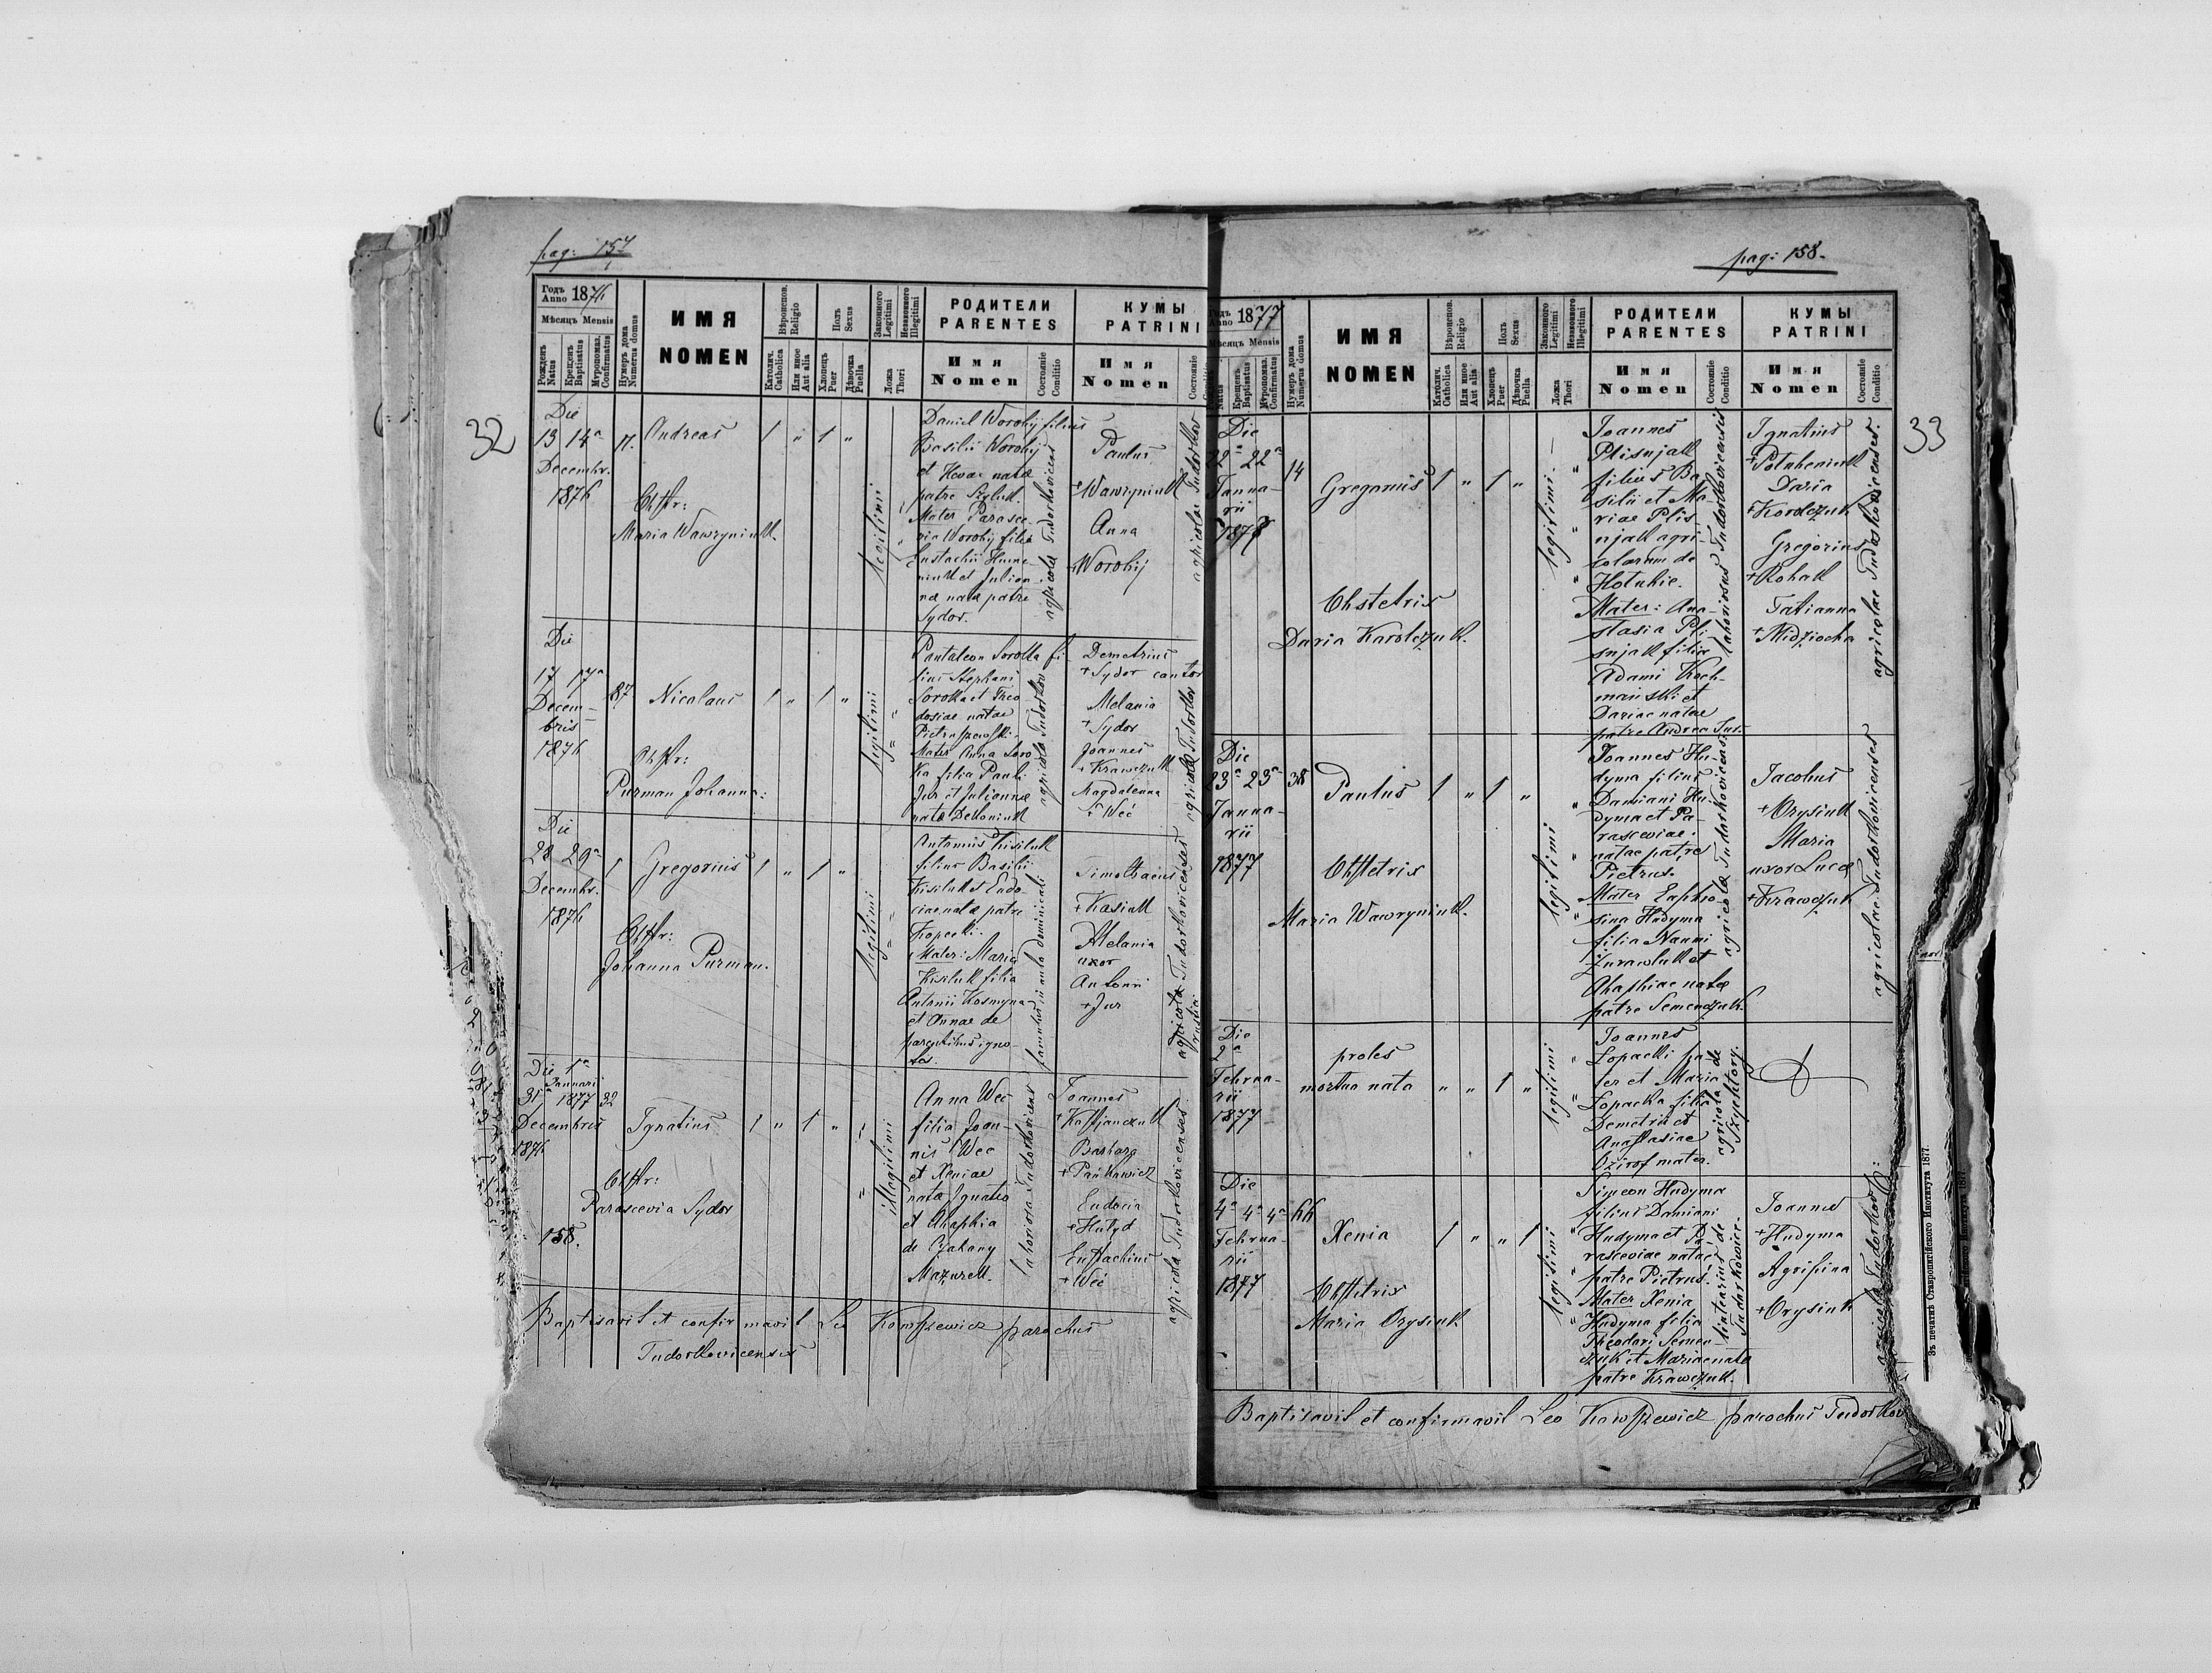 pag: 157
32
Годъ Anno 1876
Мѣсяцъ Mensis
Рожденъ Natus
Крещенъ Baptisatus
Мѵропомаз. Confirmatus
Нумеръ дома Numerus domus
ИМЯ
NOMEN
Вѣроисповѣд. Religio
Католич. Catholica
Или иное Aut alia
Полъ Sexus
Хлопецъ Puer
Дѣвочка Puella
Законного Legitimi
Незаконного Illegitimi
Ложа Thori
РОДИТЕЛИ
PARENTES
Имя
Nomen
Состояніе Conditio
КУМЫ
PATRINI
Имя
Nomen
Состояніе
Die
13 14a
Decembr.
1876
17.
Andreas
1 " 1 "
Obstr:
Maria Wawryniuk.
legitimi
Daniel Worobij filius
Basilii Worobij
et Hevae natae
patre Szeluk.
Mater Parasce-
via Worobij filia
Eustachii Hume-
niuk et Julian-
nae natae patre
Sydor.
agricola Tudorkovicens
Paulus
+Wawryniuk
Anna
+Worobij
agricolae Tudorkov
Die
17 17a
Decem-
bris
1876
87
Nicolaus
1 " 1 "
Obstr:
Purman Johanna:
legitimi
Pantaleon Soroka fi-
lius Stephani
Soroka et Theo
dosiae natae
Pietraszewski.
Mater Anna Soro
ka filia Pauli
Jur et Julianna
nata Dekoniuk
agricola Tudorkov
Demetrius
+Sydor cantor
Melania
+Sydor
Joannes
+Krawczuk
Magdalenna
+Weć
agricolae Tudorkov
Die
28 29a
Decembr.
1876
1
Gregorius
1 " 1 "
Obstr:
Johanna Purman.
legitimi
Antonius Kisiluk
filius Basilii
Kisiluk et Eudo-
ciae natae patre
Kopecki.
Mater: Maria
Kisiluk filia
Antonii Kosmyna
et Annae de
parentibus igno-
tis.
famulus in aula dominicali
Timothaeus
+Kasiak
Melania
uxor
Antonii
+Jur
agricola Tudorkovicenses
rustici
Die 1a
Januarii
31a 1877
Decembris
1876
32
Ignatius
1 " 1 "
Obstr:
Parascevia Sydor
158.
illegitimi
Anna Weć
filia Joan-
nis Weć
et Xeniae
nata Ignatio
et Ahaphia
de Czahany
Mazurek.
laboriosa Tudorkovicens
Joannes
+Kostjanczuk
Barbara
+Pańkowicz
Eudocia
+Hułyd
Eustachius
+Weć
agricola Tudorkovicenses
Baptisavit et confirmavit Leo Kowszewicz parochus
Tudorkovicensis
pag: 158.
33
Годъ Anno 1877
Мѣсяцъ Mensis
Natus
Крещенъ Baptisatus
Мѵропомаз. Confirmatus
Нумеръ дома Numerus domus
ИМЯ
NOMEN
Вѣроисповѣд. Religio
Католич. Catholica
Или иное Aut alia
Полъ Sexus
Хлопецъ Puer
Дѣвочка Puella
Законного Legitimi
Незаконного Illegitimi
Ложа Thori
РОДИТЕЛИ
PARENTES
Имя
Nomen
Состояніе Conditio
КУМЫ
PATRINI
Имя
Nomen
Состояніе Conditio
Die
22a 22a
Janua-
rii
1877
14
Gregorius
1 " 1 "
Obstetrix
Daria Karolczuk.
legitimi
Joannes
Plisnjak
filius Ba-
silii et Ma-
riae Plis
njak agri-
colarum de
Hotubie.
Mater: Ana-
stasia Pli-
snjak filia
Adami Koch-
mański et
Dariae natae
patre Andrea Jur.
laboriosus Tudorkovicensis
Ignatius
+Potuheniuk
Daria
+Korolczuk
Gregorius
+Rohak
Tatianna
+Midziocha
agricolae Tudorkovicenses.
Die
23a 23a
Janua-
rii
1877
38
Paulus
1 " 1 "
Obstetrix
Maria Wawryniuk.
legitimi
Joannes Hu-
dyma filius
Damiani Hu-
dyma et Pa-
rasceviae
natae patre
Pietrus.
Mater Eaphro-
sina Hudyma
filia Naumi
Zurawluk et
Ahaphiae natae
patre Semenczuk.
agricola Tudorkovicens.
Jacobus
+Orysiuk
Maria
uxor Lucae
+Krawczuk
agricolae Tudorkovicenses
Die
2a
Februa-
rii
1877
proles
mortua nata
" " 1 "
legitimi
Joannes
Łopacki pa-
ter et Maria
Łopacka filia
Demetrii et
Anastasiae
Dzirof mater.
agricola de
Szychtory.
Die
4a 4a 4a
Februa-
rii
1877
66
Xenia
1 " " 1
Obstetrix
Maria Orysiuk
legitimi
Simeon Hudyma
filius Damiani
Hudyma et Pa-
rasceviae natae
patre Pietrus.
Mater Xenia
Hudyma filia
Theodori Semen-
czuk et Mariae nata
patre Krawczuk.
lintearius de
Tudorkowice.
Joannes
+Hudyma
Agripina
+Orysiuk
agricola Tudorkov:
Baptisavit et confirmavit Leo Kowszewicz parochus Tudorkov
Зъ печатнѣ Ставропигійского Института 1877.